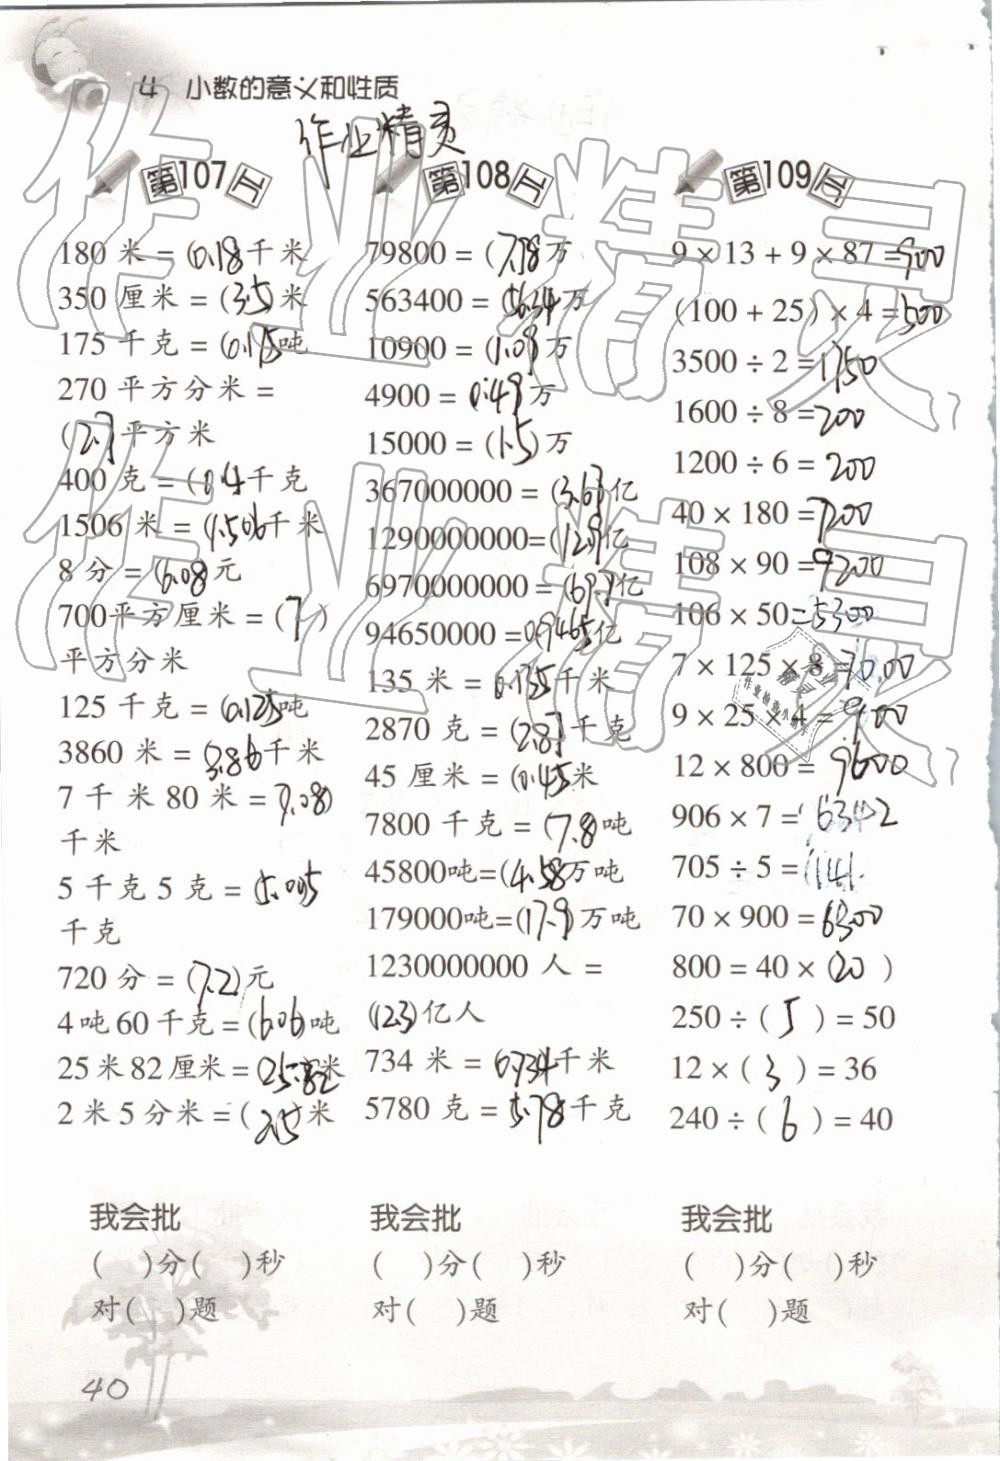 4 小数的意义和性质
作业精灵
第107天
180 米 = (0.18千米
350 厘米 = (3.5)米
175 千克 = (0.175吨
270 平方分米 =
(2.7平方米
400 克 = (0.4千克
1506 米 = (1.506千米
8 分 = (0.08元
700平方厘米 = (7)
平方分米
125 千克 = (0.125吨
3860 米 = (3.86千米
7 千 米 80 米 = 7.08)
千米
5 千克 5 克 = (5.005
千克
720 分 = (7.2)元
4 吨 60 千克 = (6.06)吨
25 米 82 厘米 = (25.82米
2 米 5 分米 = (2.5米
我会批
( )分( )秒
对( )题
第108天
79800 = (7.98万
563400 = 56.34万
10900 = (1.09万
4900 = 0.49万
15000 = (1.5)万
367000000 = (3.67亿
1290000000=(12.9亿
6970000000 = (69.7亿
94650000 =0.9465亿
135 米 = 0.135千米
2870 克 = (2.87千克
45 厘米 = (0.45米
7800 千克 = (7.8吨
45800吨=(4.58万吨
179000吨=(17.9)万吨
1230000000 人 =
(12.3)亿人
734 米 = 0.734千米
5780 克 = 5.78千克
我会批
( )分( )秒
对( )题
第109天
9 × 13 + 9 × 87 =900
(100 + 25) × 4 =500
3500 ÷ 2 =1750
1600 ÷ 8 =200
1200 ÷ 6 = 200
40 × 180 =7200
108 × 90 =9200
106 × 50=5300
7 × 125 × 8 =7000
9 × 25 × 4 = 900
12 × 800 = 9600
906 × 7 = 6342
705 ÷ 5 = (141.
70 × 900 = 6300
800 = 40 × (20 )
250 ÷ ( 5 ) = 50
12 × ( 3 ) = 36
240 ÷ ( 6 ) = 40
我会批
( )分( )秒
对( )题
40
作业精灵
作业精灵